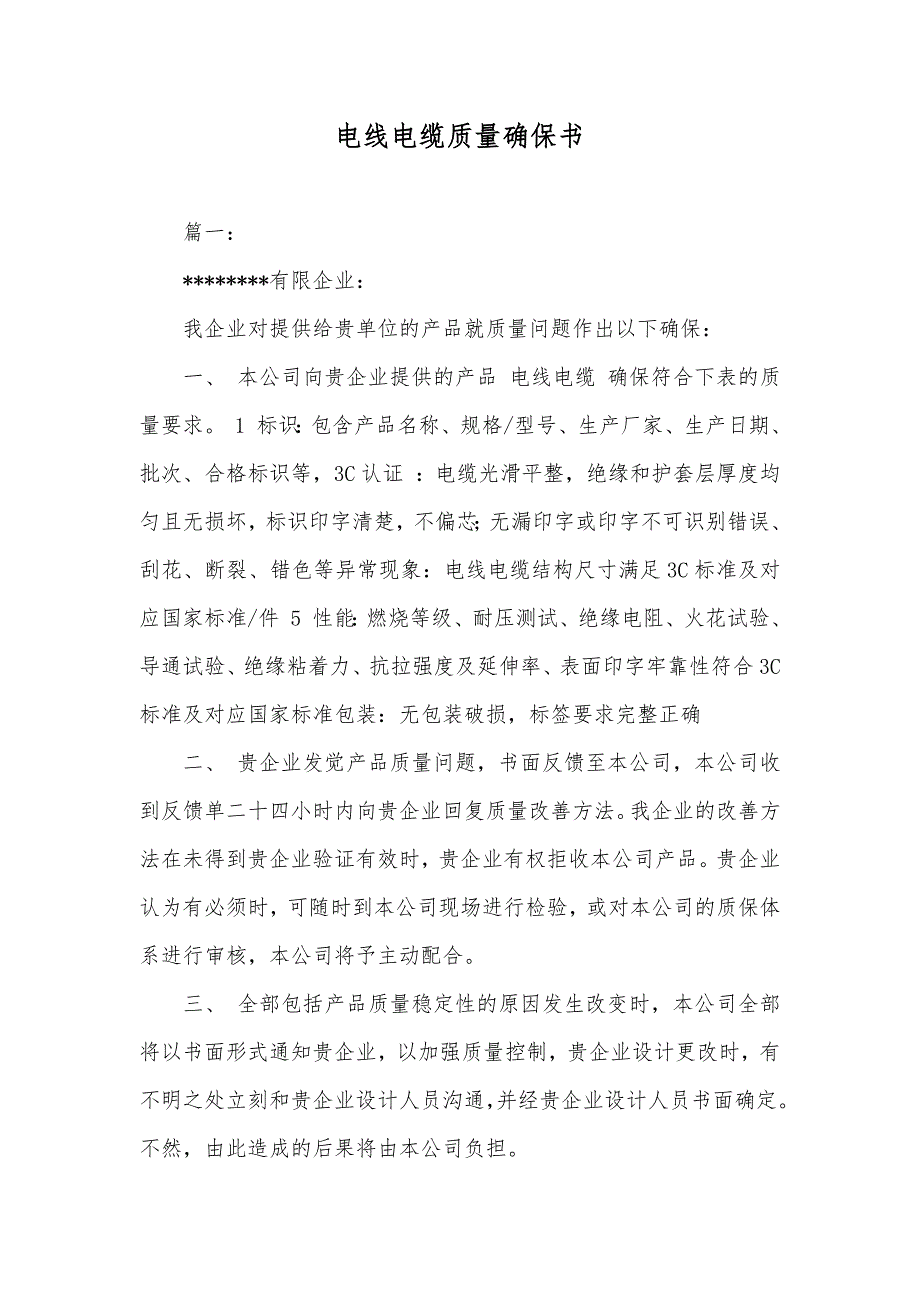 电线电缆质量确保书
篇一：
********有限企业：
我企业对提供给贵单位的产品就质量问题作出以下确保：
一、 本公司向贵企业提供的产品 电线电缆 确保符合下表的质
量要求。 1 标识：包含产品名称、规格/型号、生产厂家、生产日期、
批次、合格标识等，3C认证 ：电缆光滑平整，绝缘和护套层厚度均
匀且无损坏，标识印字清楚，不偏芯；无漏印字或印字不可识别错误、
刮花、断裂、错色等异常现象：电线电缆结构尺寸满足3C标准及对
应国家标准/件 5 性能：燃烧等级、耐压测试、绝缘电阻、火花试验、
导通试验、绝缘粘着力、抗拉强度及延伸率、表面印字牢靠性符合3C
标准及对应国家标准包装：无包装破损，标签要求完整正确
二、 贵企业发觉产品质量问题，书面反馈至本公司，本公司收
到反馈单二十四小时内向贵企业回复质量改善方法。我企业的改善方
法在未得到贵企业验证有效时，贵企业有权拒收本公司产品。贵企业
认为有必须时，可随时到本公司现场进行检验，或对本公司的质保体
系进行审核，本公司将予主动配合。
三、 全部包括产品质量稳定性的原因发生改变时，本公司全部
将以书面形式通知贵企业，以加强质量控制，贵企业设计更改时，有
不明之处立刻和贵企业设计人员沟通，并经贵企业设计人员书面确定。
不然，由此造成的后果将由本公司负担。